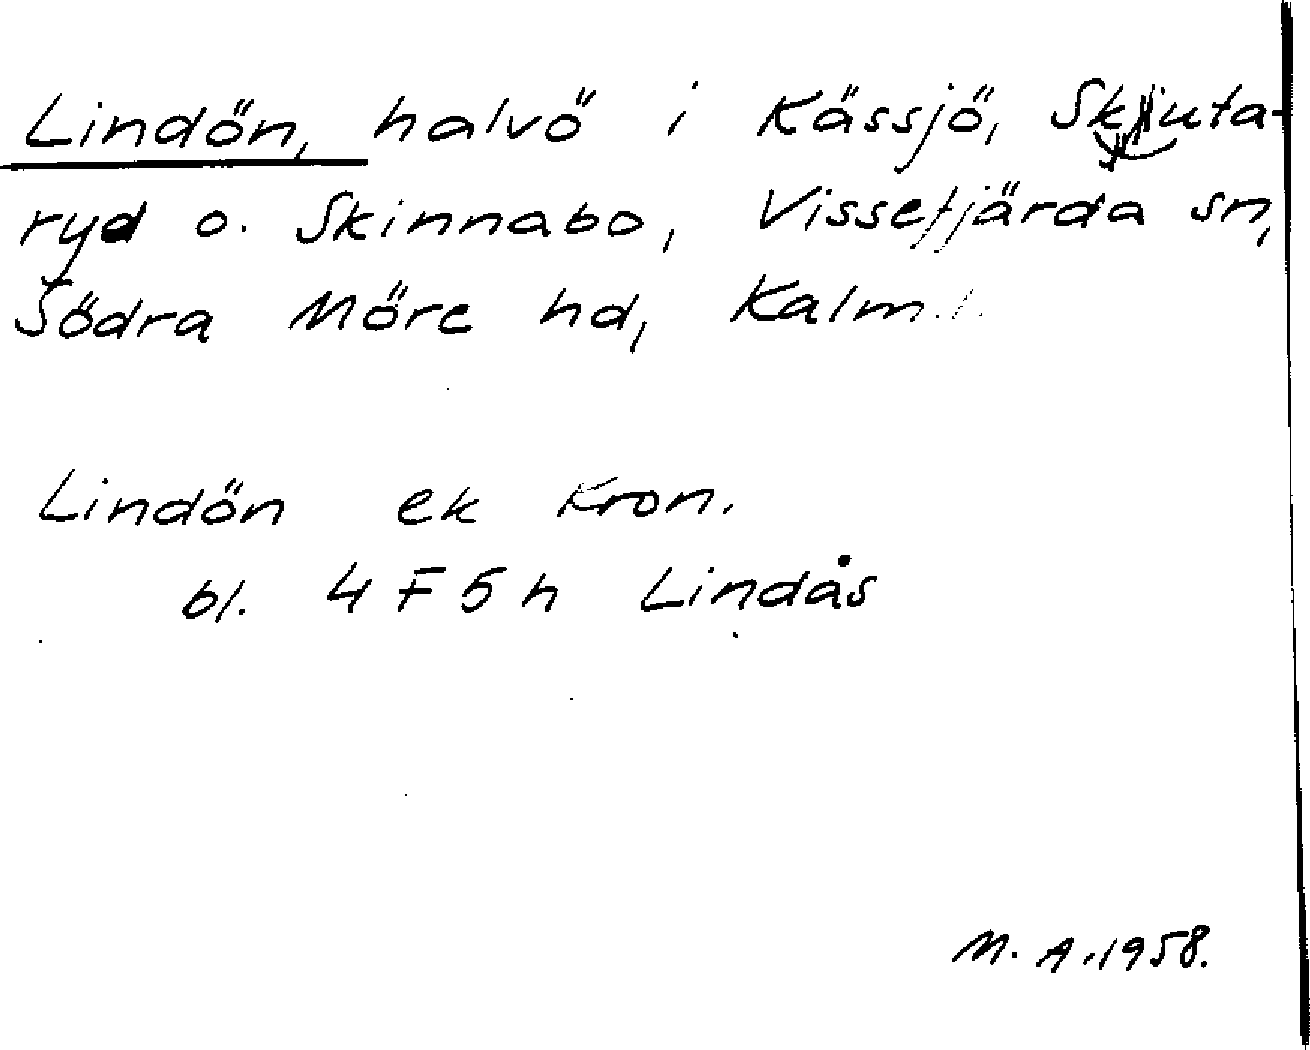 Lindön, halvö i Kässjö, Skuta-
ryd o. Skinnabo, Vissefjärda sn,
Södra Möre hd, Kalm.l.
Lindön ek Kron.
bl. 4F5h Lindås
M.A.1958.